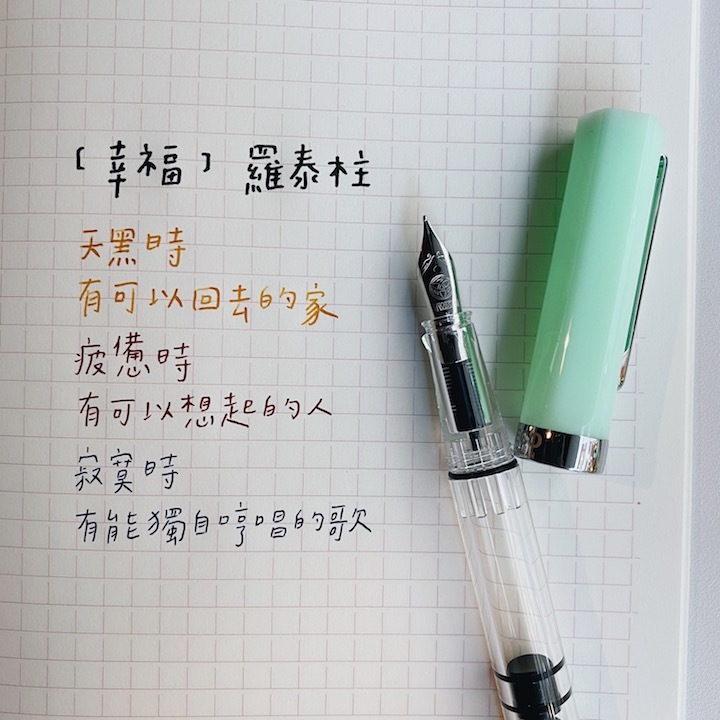 「幸福」羅泰柱
天黑時
有可以回去的家
疲憊時
有可以想起的人
寂寞時
有能獨自哼唱的歌